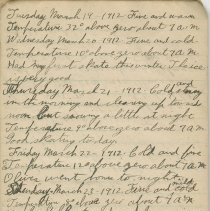 Tuesday March 19 1912 Fine and warm
Temperature 32° above zero about 9 a.m
Wednesday March 20 1912 Fine and cold
Temperature 10° above zero about 9 a.m
Had my first skate this winter The ice
is very good
Thursday March 21 1912 Cold snowing
in the morning and clearing up towards
noon but snowing a little at night
Temperature 9° above zero about 9 a.m
Good skating to day
Friday March 22 1912 Cold and fine
Temperature 12° above zero about 9 a.m
went home to night
Saturday March 23 1912 Fine and cold
Temperature above zero about 9 a.m